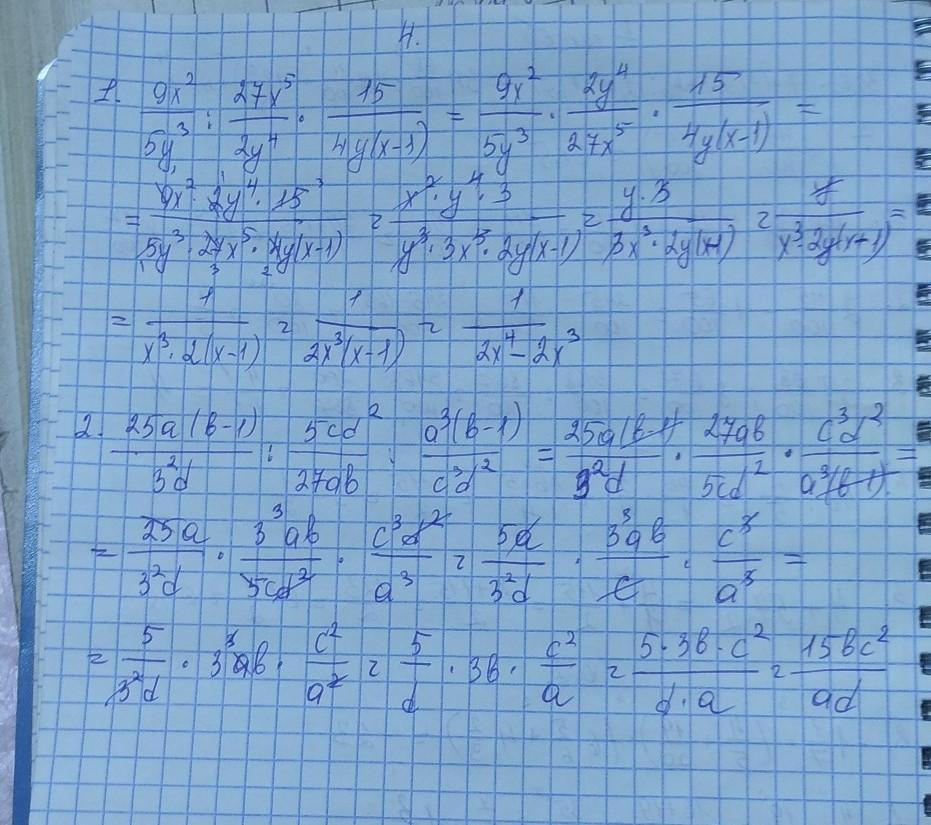 4.
1. 9x²/5y³ : 27x⁵/2y⁴ · 15/4y(x-1) = 9x²/5y³ · 2y⁴/27x⁵ · 15/4y(x-1) =
= 9x²·2y⁴·15/5y³·27x⁵·4y(x-1) = x²·y⁴·3/y³·3x⁵·2y(x-1) = y·3/3x³·2y(x-1) = y/x³·2y(x+1) =
= 1/x³·2(x-1) = 1/2x³(x-1) = 1/2x⁴-2x³
2. 25a(b-1)/3²d : 5cd²/27ab : a³(b-1)/c³d² = 25a(b-1)/3²d · 27ab/5cd² · c³d²/a³(b-1) =
= 25a/3²d · 3³ab/5cd² · c³d²/a³ = 5a/3²d · 3³ab/c · c³/a³ =
= 5/3²d · 3³ab · c²/a² = 5/d · 3b · c²/a = 5·3b·c²/d·a = 15bc²/ad